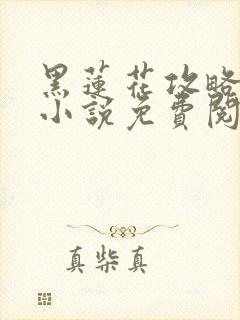 黑蓮花攻略
小說免費閱
真柴真